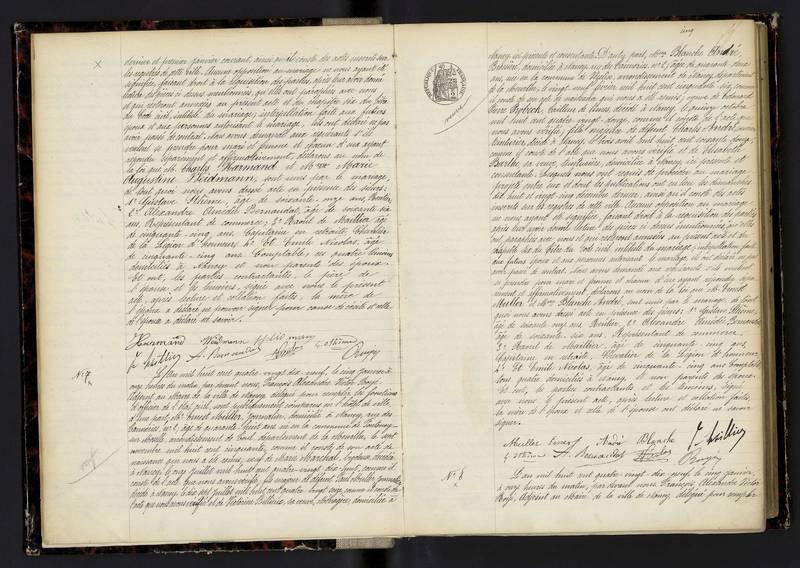 dernier et premier janvier courant, ainsi qu'il conste des actes inscrits sur
les registres de cette ville. Aucune opposition au mariage ne nous ayant été
signifiée, faisant droit à la réquisition des parties, après leur avoir donné
lecture des pièces ci-dessus mentionnées, qu'elles ont paraphées avec nous
et qui resteront annexées au présent acte et du chapitre six du titre
du Code civil, intitulé du mariage; interpellation faite aux futurs
époux et aux personnes autorisant le mariage, ils ont déclaré ne pas
avoir passé de contrat. Nous avons demandé aux requérants s'ils
veulent se prendre pour mari et femme et chacun d'eux ayant
répondu séparément et affirmativement, déclarons au nom de
la loi que Mr. Charles Harmand et Melle Marie
Augustine Widmann, sont unis par le mariage,
de tout quoi nous avons dressé acte en présence des sieurs:
1o Gustave Stieme, âgé de soixante onze ans, Rentier,
2o Alexandre Amédée Bernaudat, âgé de soixante six
ans, Représentant de commerce; 3o Raoul de Meillier, âgé
de cinquante-cinq ans, Capitaine en retraite, Chevalier
de la Légion d'honneur; 4o Et Emile Nicolas, âgé
de cinquante-cinq ans, Comptable; ces quatre témoins
domiciliés à Nancy et non parents des époux.
Et ont, les parties contractantes, le père de
l'épouse et les témoins, signé avec nous le présent
acte, après lecture et collation faites, la mère de
l'époux a déclaré ne pouvoir signer pour cause de cécité et celle
de l'épouse a déclaré ne savoir.
Harmand Widmann
No 7
L'an mil huit cent quatre-vingt dix neuf, le cinq janvier à
onze heures du matin, par devant nous, François Alexandre Victor Boyé,
Adjoint au Maire de la ville de Nancy délégué pour remplir les fonctions
d'officier de l'état civil, sont publiquement comparus en l'hôtel de ville,
D'une part, Mr. Ernest Muller, Journalier, domicilié à Nancy, rue des
Tanneries, no 2, âgé de quarante-huit ans, né en la commune de
sur Moselle, arrondissement de Toul, département de la Meurthe, le sept
novembre mil huit cent cinquante, comme il conste de son acte de
naissance qui nous a été remis, veuf de Marie Marchal, décédée
à Nancy, le onze juillet mil huit cent quatre-vingt dix huit, comme il
conste de l'acte que nous avons vérifié, fils majeur de défunt Muller, Journalier
décédé à Nancy le dix sept juillet mil huit cent quatre-vingt seize, comme il conste de
l'acte que nous avons vérifié et de Victorine, sa veuve, domiciliée à
cinq
Nancy, ici présente et consentante. D'autre part, Mme Blanche André,
domiciliée à Nancy, rue des Tanneries, no 2, âgée de quarante deux
ans, née en la commune de, arrondissement de Nancy, département
de la Meurthe, le vingt neuf mai mil huit cent cinquante six, comme
il conste de son acte de naissance qui nous a été remis; veuve de Edouard
Pierre, décédé à Nancy, le quinze octobre
mil huit cent quatre-vingt douze, comme il conste de l'acte que
nous avons vérifié; fille majeure de défunt Charles André,
décédé à Nancy, le trois avril mil huit cent soixante douze,
comme il conste de l'acte que nous avons vérifié et de Elisabeth
Barthe, sa veuve, domiciliée à Nancy, ici présente et
consentante. Lesquels nous ont requis de procéder au mariage
projeté entre eux et dont les publications ont eu lieu les dimanches
dix huit et vingt cinq décembre dernier, ainsi qu'il conste des actes
inscrits sur les registres de cette ville. Aucune opposition au mariage
ne nous ayant été signifiée, faisant droit à la réquisition des parties
après leur avoir donné lecture des pièces ci-dessus mentionnées, qu'elles
ont paraphées avec nous et qui resteront annexées au présent acte et du
chapitre six du titre du Code civil intitulé du mariage; interpellation faite
aux futurs époux et aux personnes autorisant le mariage, ils ont déclaré ne pas
avoir passé de contrat. Nous avons demandé aux requérants s'ils veulent
se prendre pour mari et femme et chacun d'eux ayant répondu séparé-
ment et affirmativement, déclarons au nom de la loi que Mr. Ernest
Muller et Mme Blanche André, sont unis par le mariage, de tout
quoi nous avons dressé acte en présence des sieurs: 1o Gustave Stieme,
âgé de soixante onze ans, Rentier, 2o Alexandre Amédée Bernaudat,
âgé de soixante six ans, Représentant de commerce,
3o Raoul de Meillier, âgé de cinquante-cinq ans,
Capitaine en retraite, Chevalier de la Légion d'honneur,
4o Et Emile Nicolas, âgé de cinquante-cinq ans, Comptable,
tous quatre domiciliés à Nancy, et non parents des époux.
Et ont, les parties contractantes et les témoins, signé
avec nous le présent acte, après lecture et collation faites,
la mère de l'époux et celle de l'épouse ont déclaré ne savoir
signer.
Muller Ernest André Blanche
No 8
L'an mil huit cent quatre-vingt dix neuf, le cinq janvier,
à onze heures du matin, par devant nous, François Alexandre Victor
Boyé, Adjoint au Maire de la ville de Nancy délégué pour remplir